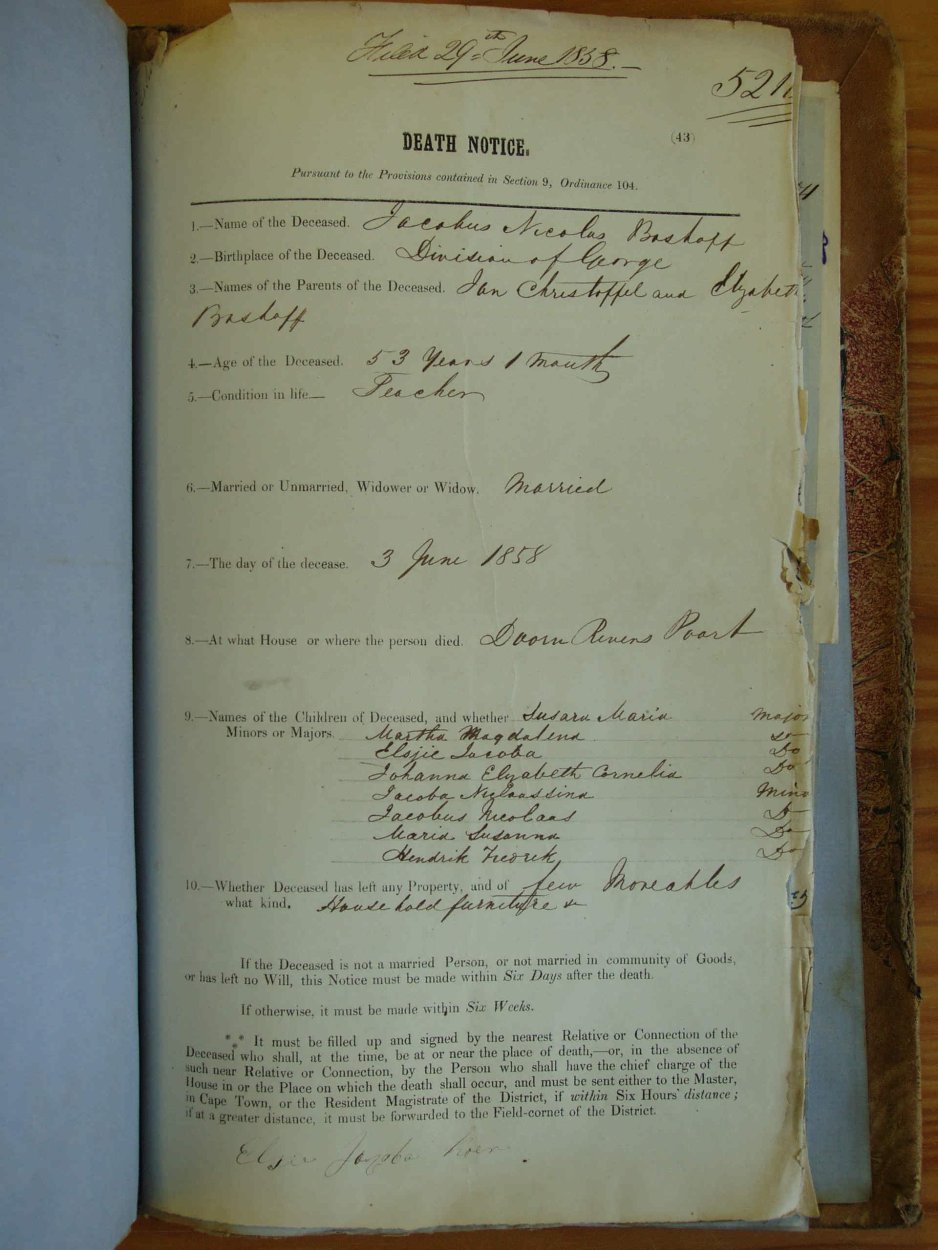 Filed 29th June 1858.
(43)
DEATH NOTICE.
Pursuant to the Provisions contained in Section 9, Ordinance 104.
1.—Name of the Deceased. Jacobus Nicolas Boshoff
2.—Birthplace of the Deceased. Division of George
3.—Names of the Parents of the Deceased. Jan Christoffel and Elizabeth
Boshoff
4.—Age of the Deceased. 53 Years 1 Month
5.—Condition in life— Teacher
6.—Married or Unmarried, Widower or Widow. Married
7.—The day of the decease. 3 June 1858
8.—At what House or where the person died. Doorn Rivers Poort
9.—Names of the Children of Deceased, and whether Susara Maria Major
Minors or Majors. Martha Magdalena
Elsjie Jacoba Do
Johanna Elyzabeth Cornelia Do
Jacoba Minor
Jacobus Nicolaas Do
Maria Susanna Do
Hendrik Fredrik Do
10.—Whether Deceased has left any Property, and of few Moveables
what kind. Household furniture &
If the Deceased is not a married Person, or not married in community of Goods,
or has left no Will, this Notice must be made within Six Days after the death.
If otherwise, it must be made within Six Weeks.
*** It must be filled up and signed by the nearest Relative or Connection of the
Deceased who shall, at the time, be at or near the place of death,—or, in the absence of
such near Relative or Connection, by the Person who shall have the chief charge of the
House in or the Place on which the death shall occur, and must be sent either to the Master,
in Cape Town, or the Resident Magistrate of the District, if within Six Hours' distance;
if at a greater distance, it must be forwarded to the Field-cornet of the District.